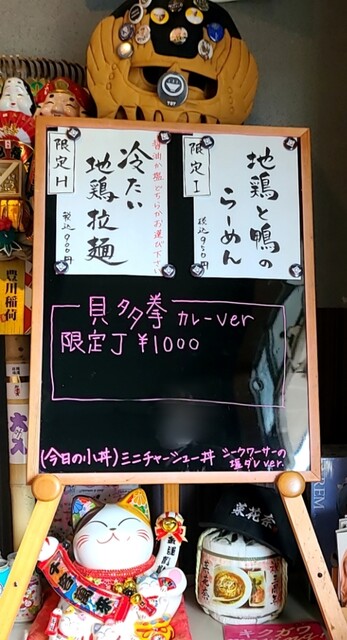 限定I
地鶏と鴨の
らーめん
税込950円
醤油か塩どちらかお選び下さい
冷たい
地鶏拉麺
限定H
税込900円
貝多拳 カレーver
限定J ¥1000
(今日の小丼)ミニチャーシュー丼 シークワーサーの
塩ダレver.
豊川稲荷
菜花奈
千客万来